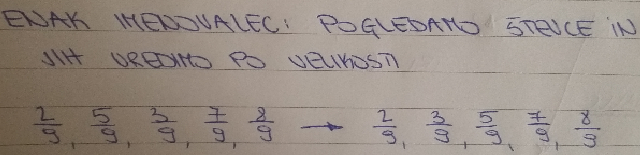 ENAK IMENOVALEC: POGLEDAMO ŠTEVCE IN
JIH UREDIMO PO VELIKOSTI
2/9, 5/9, 3/9, 7/9, 8/9 → 2/9, 3/9, 5/9, 7/9, 8/9